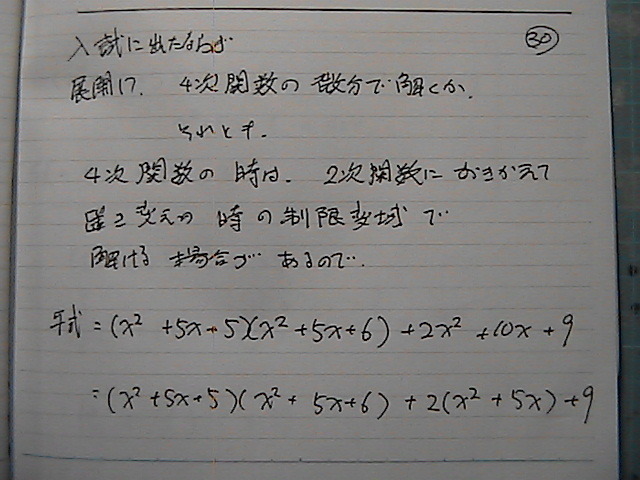 入試に出たならば
㉚
展開して、4次関数の微分で解くか、
それとも、
4次関数の時は、2次関数におきかえて
置き変えの時の制限変域で
解ける場合があるので、
与式 = (x² + 5x + 5)(x² + 5x + 6) + 2x² + 10x + 9
= (x² + 5x + 5)(x² + 5x + 6) + 2(x² + 5x) + 9